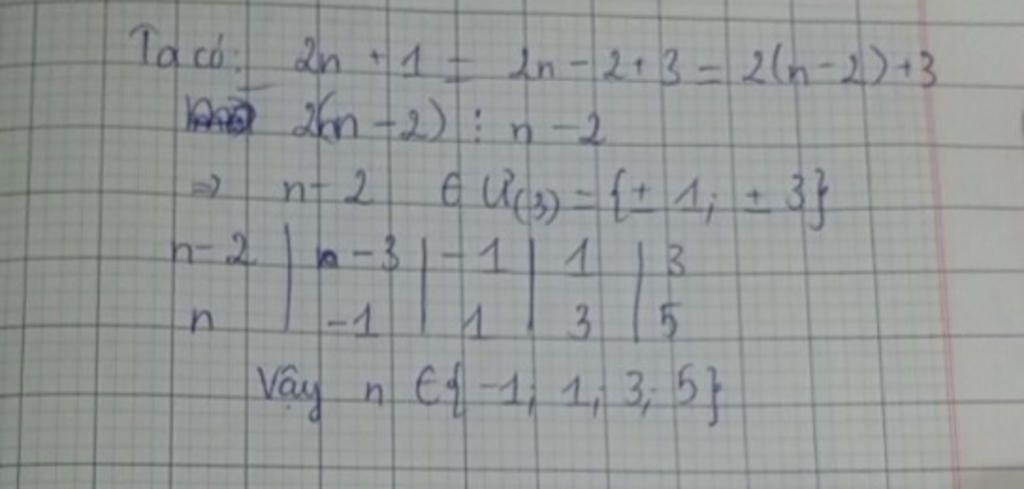 Ta có: 2n + 1 = 2n - 2 + 3 = 2(n - 2) + 3
2(n - 2) ⋮ n - 2
⇒ n - 2 ∈ Ư(3) = {± 1; ± 3}
n - 2 | -3 | -1 | 1 | 3
n | -1 | 1 | 3 | 5
Vậy n ∈ { -1; 1; 3; 5}